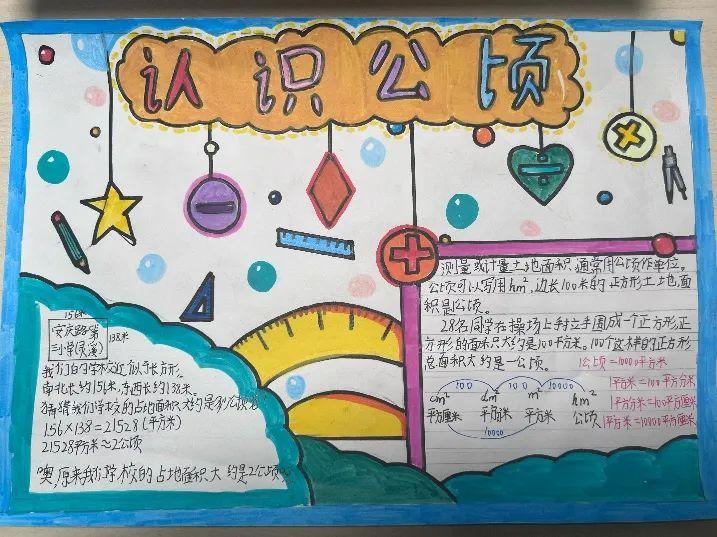 认识公顷
测量或计量土地面积,通常用公顷作单位。
公顷可以写用hm²,边长100米的正方形土地面
积是公顷。
28名同学在操场上手拉手围成一个正方形,正
方形的面积大约是100平方米。100个这样的正方形
总面积大约是一公顷。
公顷=10000平方米
1平方米=100平方分米
1平方米=100平方厘米
1平方米=10000平方厘米
100 100 10000
cm² dm² m² hm²
平方厘米 平方分米 平方米 公顷
10000
156米
安庆路第
三小学(灵溪)
138米
我们的学校近似于长方形,
南北长约156米,东西长约138米。
猜猜我们学校的占地面积大约是多少公顷?
156×138=21528(平方米)
21528平方米≈2公顷
噢,原来我们学校的占地面积大约是2公顷。